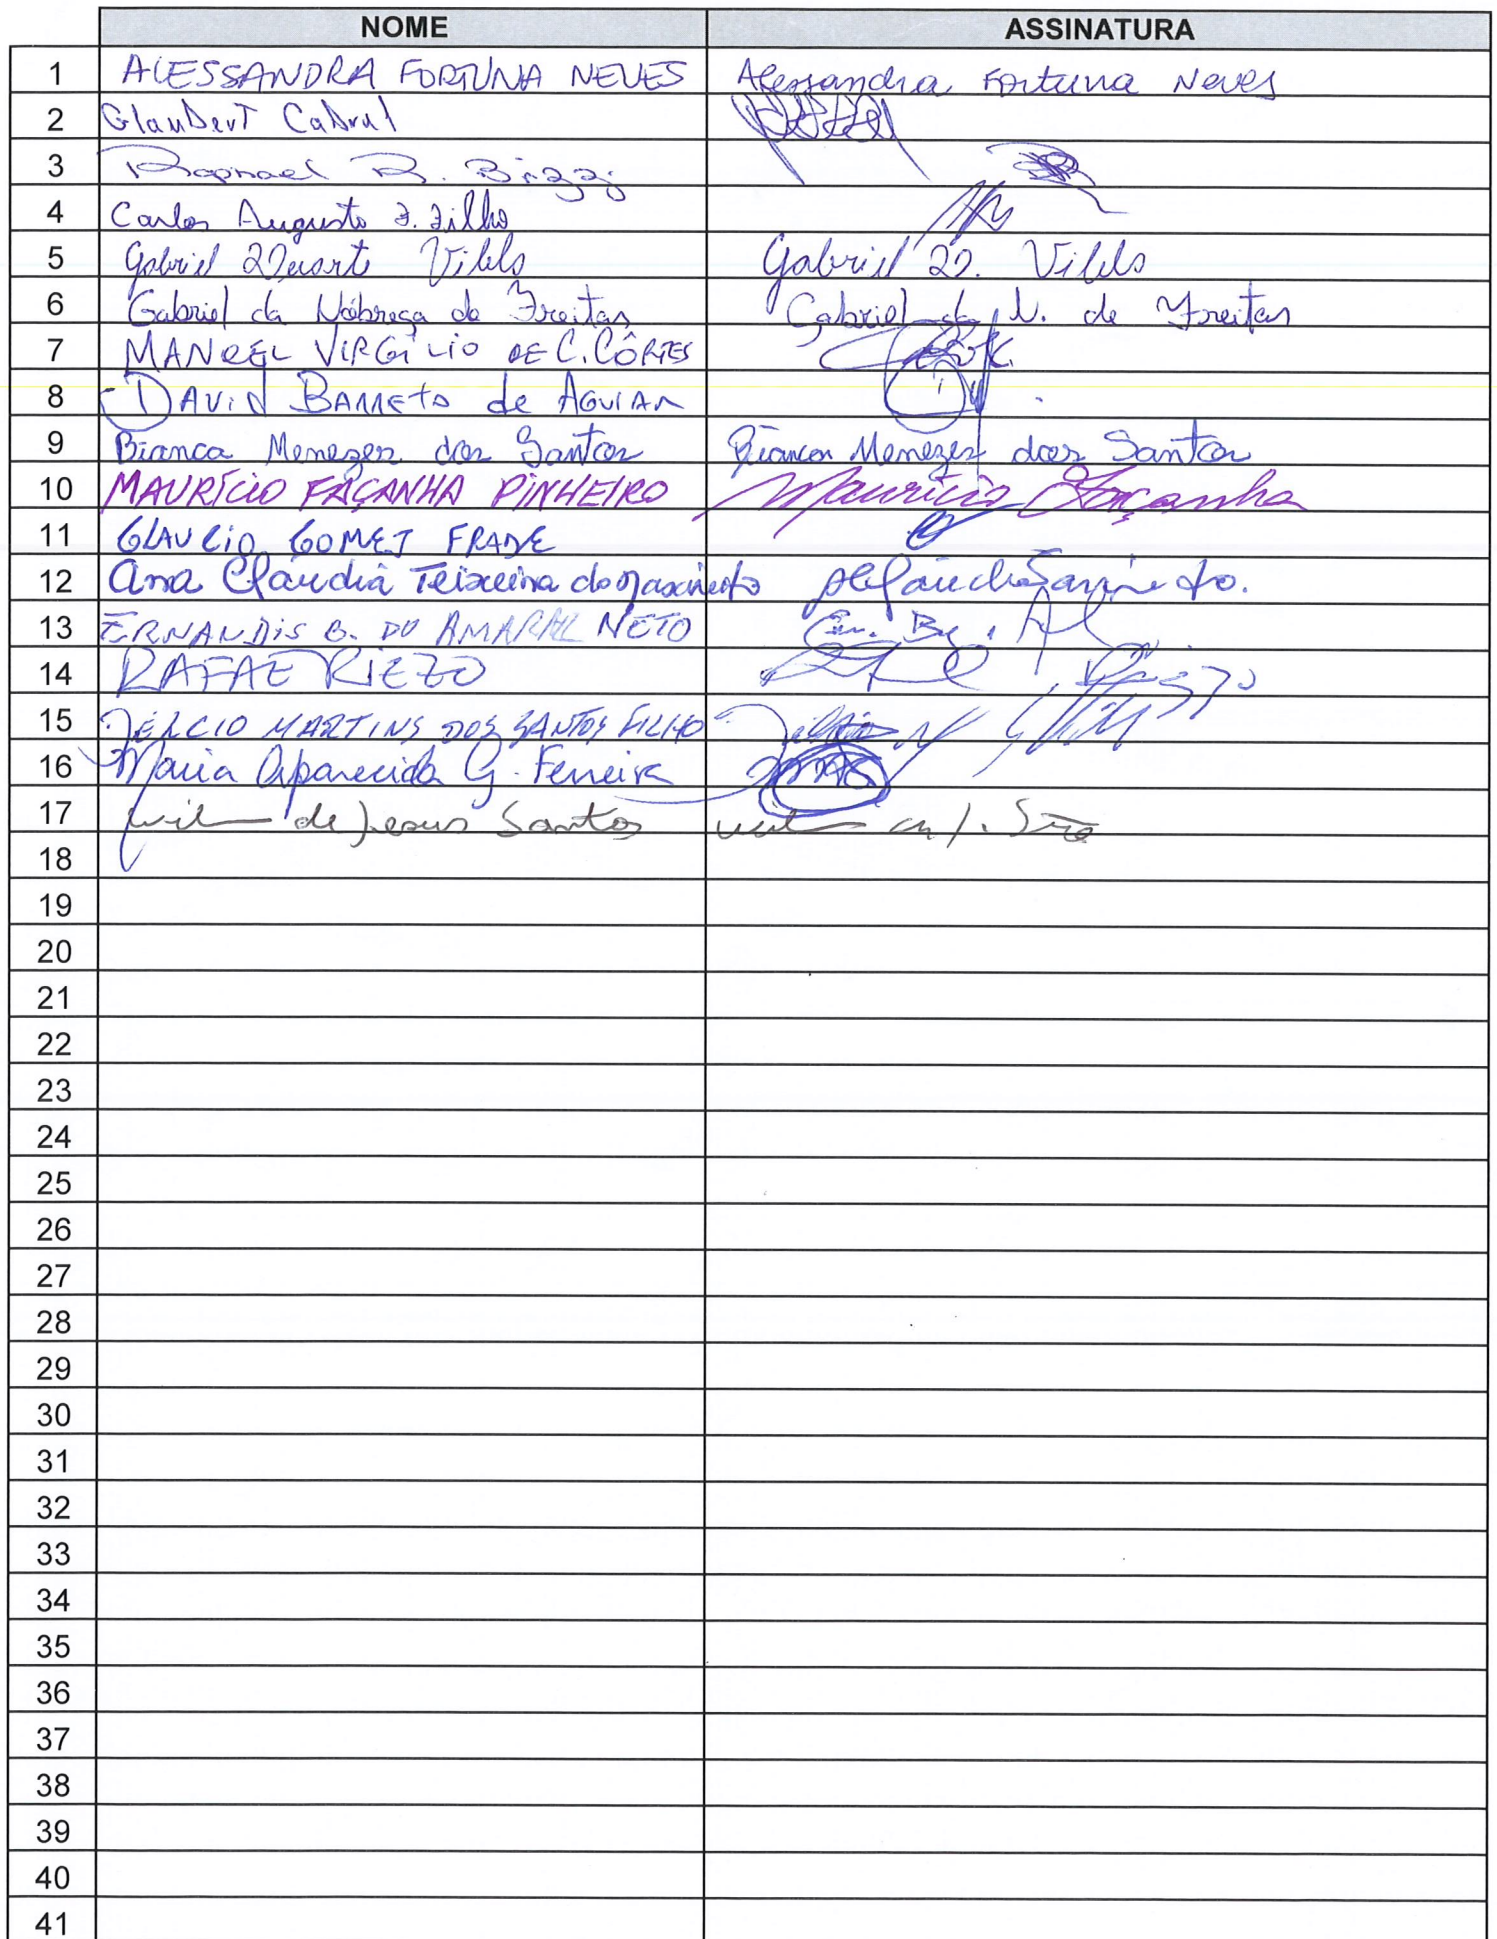 NOME ASSINATURA
1 ALESSANDRA FORTUNA NEVES Alessandra Fortuna Neves
2 Glaubert Cabral
3 Raphael R. Bizzi
4 Carlos Augusto F. Filho
5 Gabriel Duarte Vilela Gabriel D. Vilela
6 Gabriel da Nóbrega de Freitas Gabriel da N. de Freitas
7 MANOEL VIRGÍLIO DE C. CÔRTES
8 DAVID BARRETO de AGUIAR
9 Bianca Menezes dos Santos Bianca Menezes dos Santos
10 MAURÍCIO FAÇANHA PINHEIRO Maurício Façanha
11 GLAUCIO GOMES FRADE
12 Ana Cláudia Teixeira do Nascimento
13 ERNANDIS B. DO AMARAL NETO
14 RAFAE RIZZO
15 JÉLCIO MARTINS DOS SANTOS FILHO
16 Maria Aparecida G. Ferreira
17 de Jesus Santos
18
19
20
21
22
23
24
25
26
27
28
29
30
31
32
33
34
35
36
37
38
39
40
41